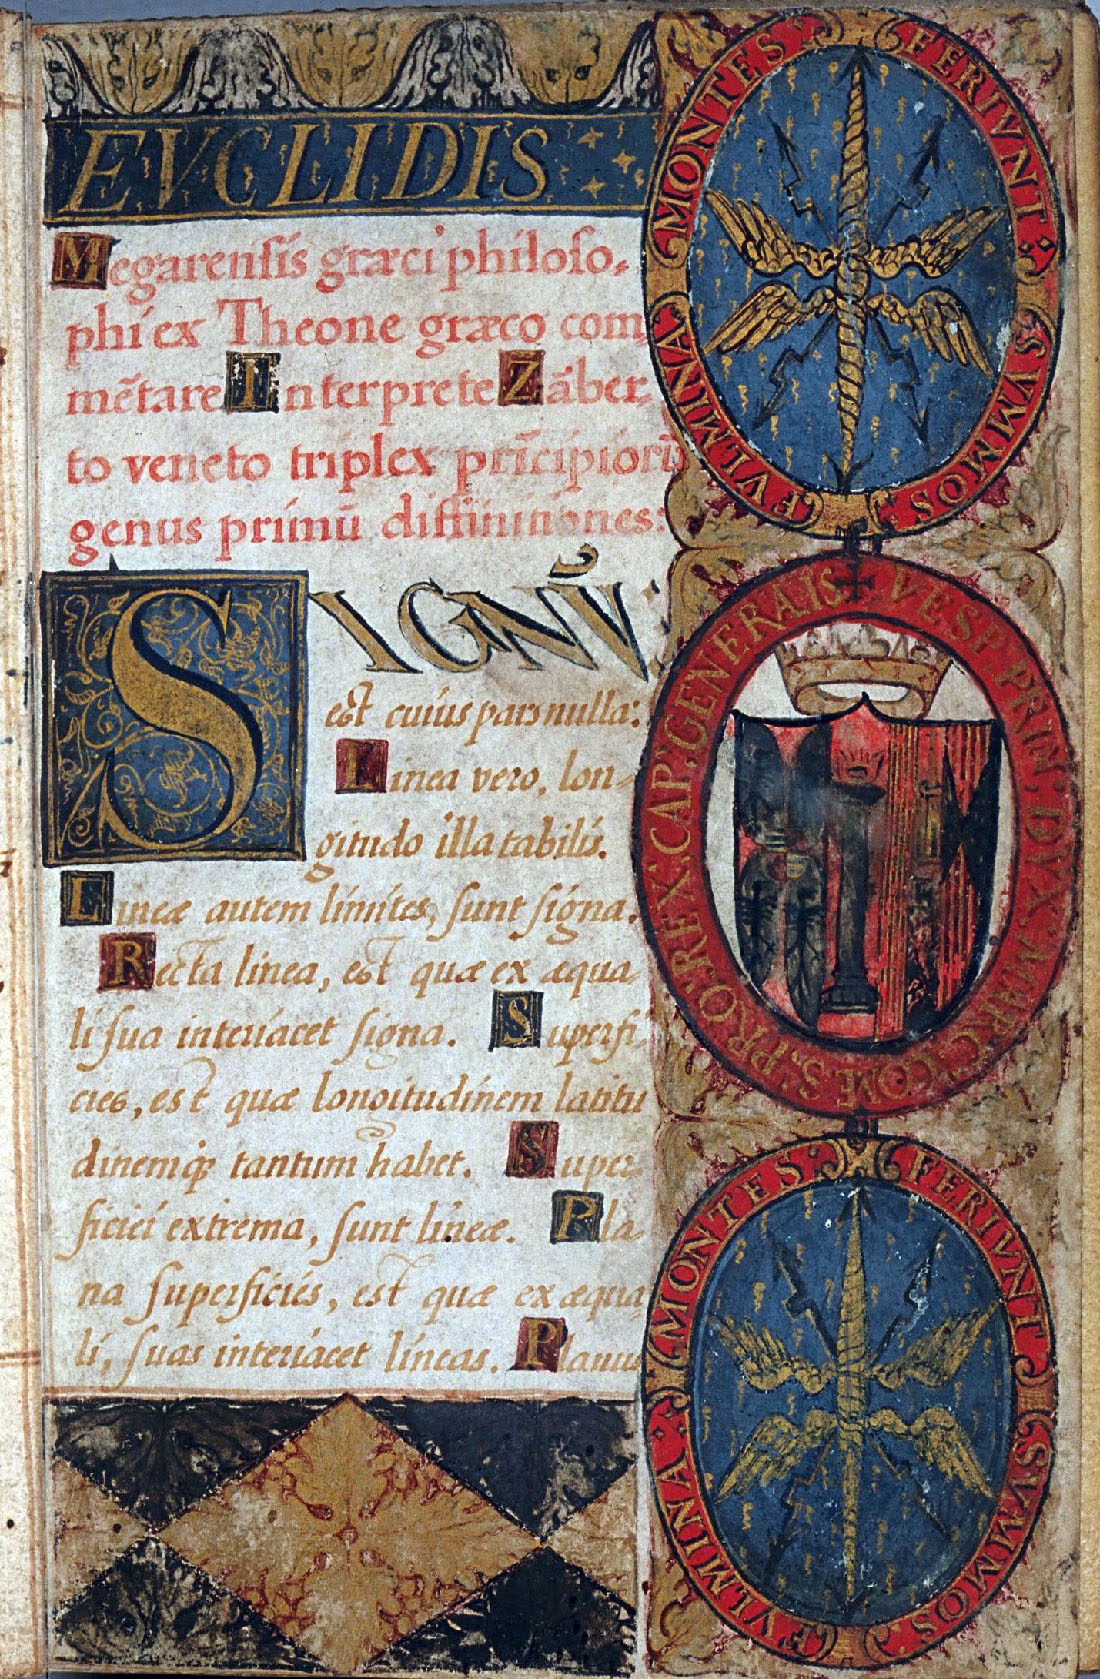 EVCLIDIS
Megarensis græci philoso-
phi ex Theone græco com,
mētare Interprete Zāber,
to veneto triplex prīcipiorū
genus primū diffinitiones:
SIGNV̄:
est cuius pars nulla:
Linea vero, lon-
gitudo illatabilis.
Lineæ autem limites, sunt signa.
Recta linea, est quæ ex æqua-
li sua interiacet signa. Superfi-
cies, est quæ longitudinem latitu
dinemq; tantum habet. Super-
ficiei extrema, sunt lineæ. Pla-
na superficies, est quæ ex æqua
li, suas interiacet lineas. Planus
FERIVNT : SVMMOS FVLMINA MONTES
✝ VESP. PRIN. DVX. MARC. COM. S. PRO. REX. CAP. GENERALIS
FERIVNT SVMMOS FVLMINA : MONTES :